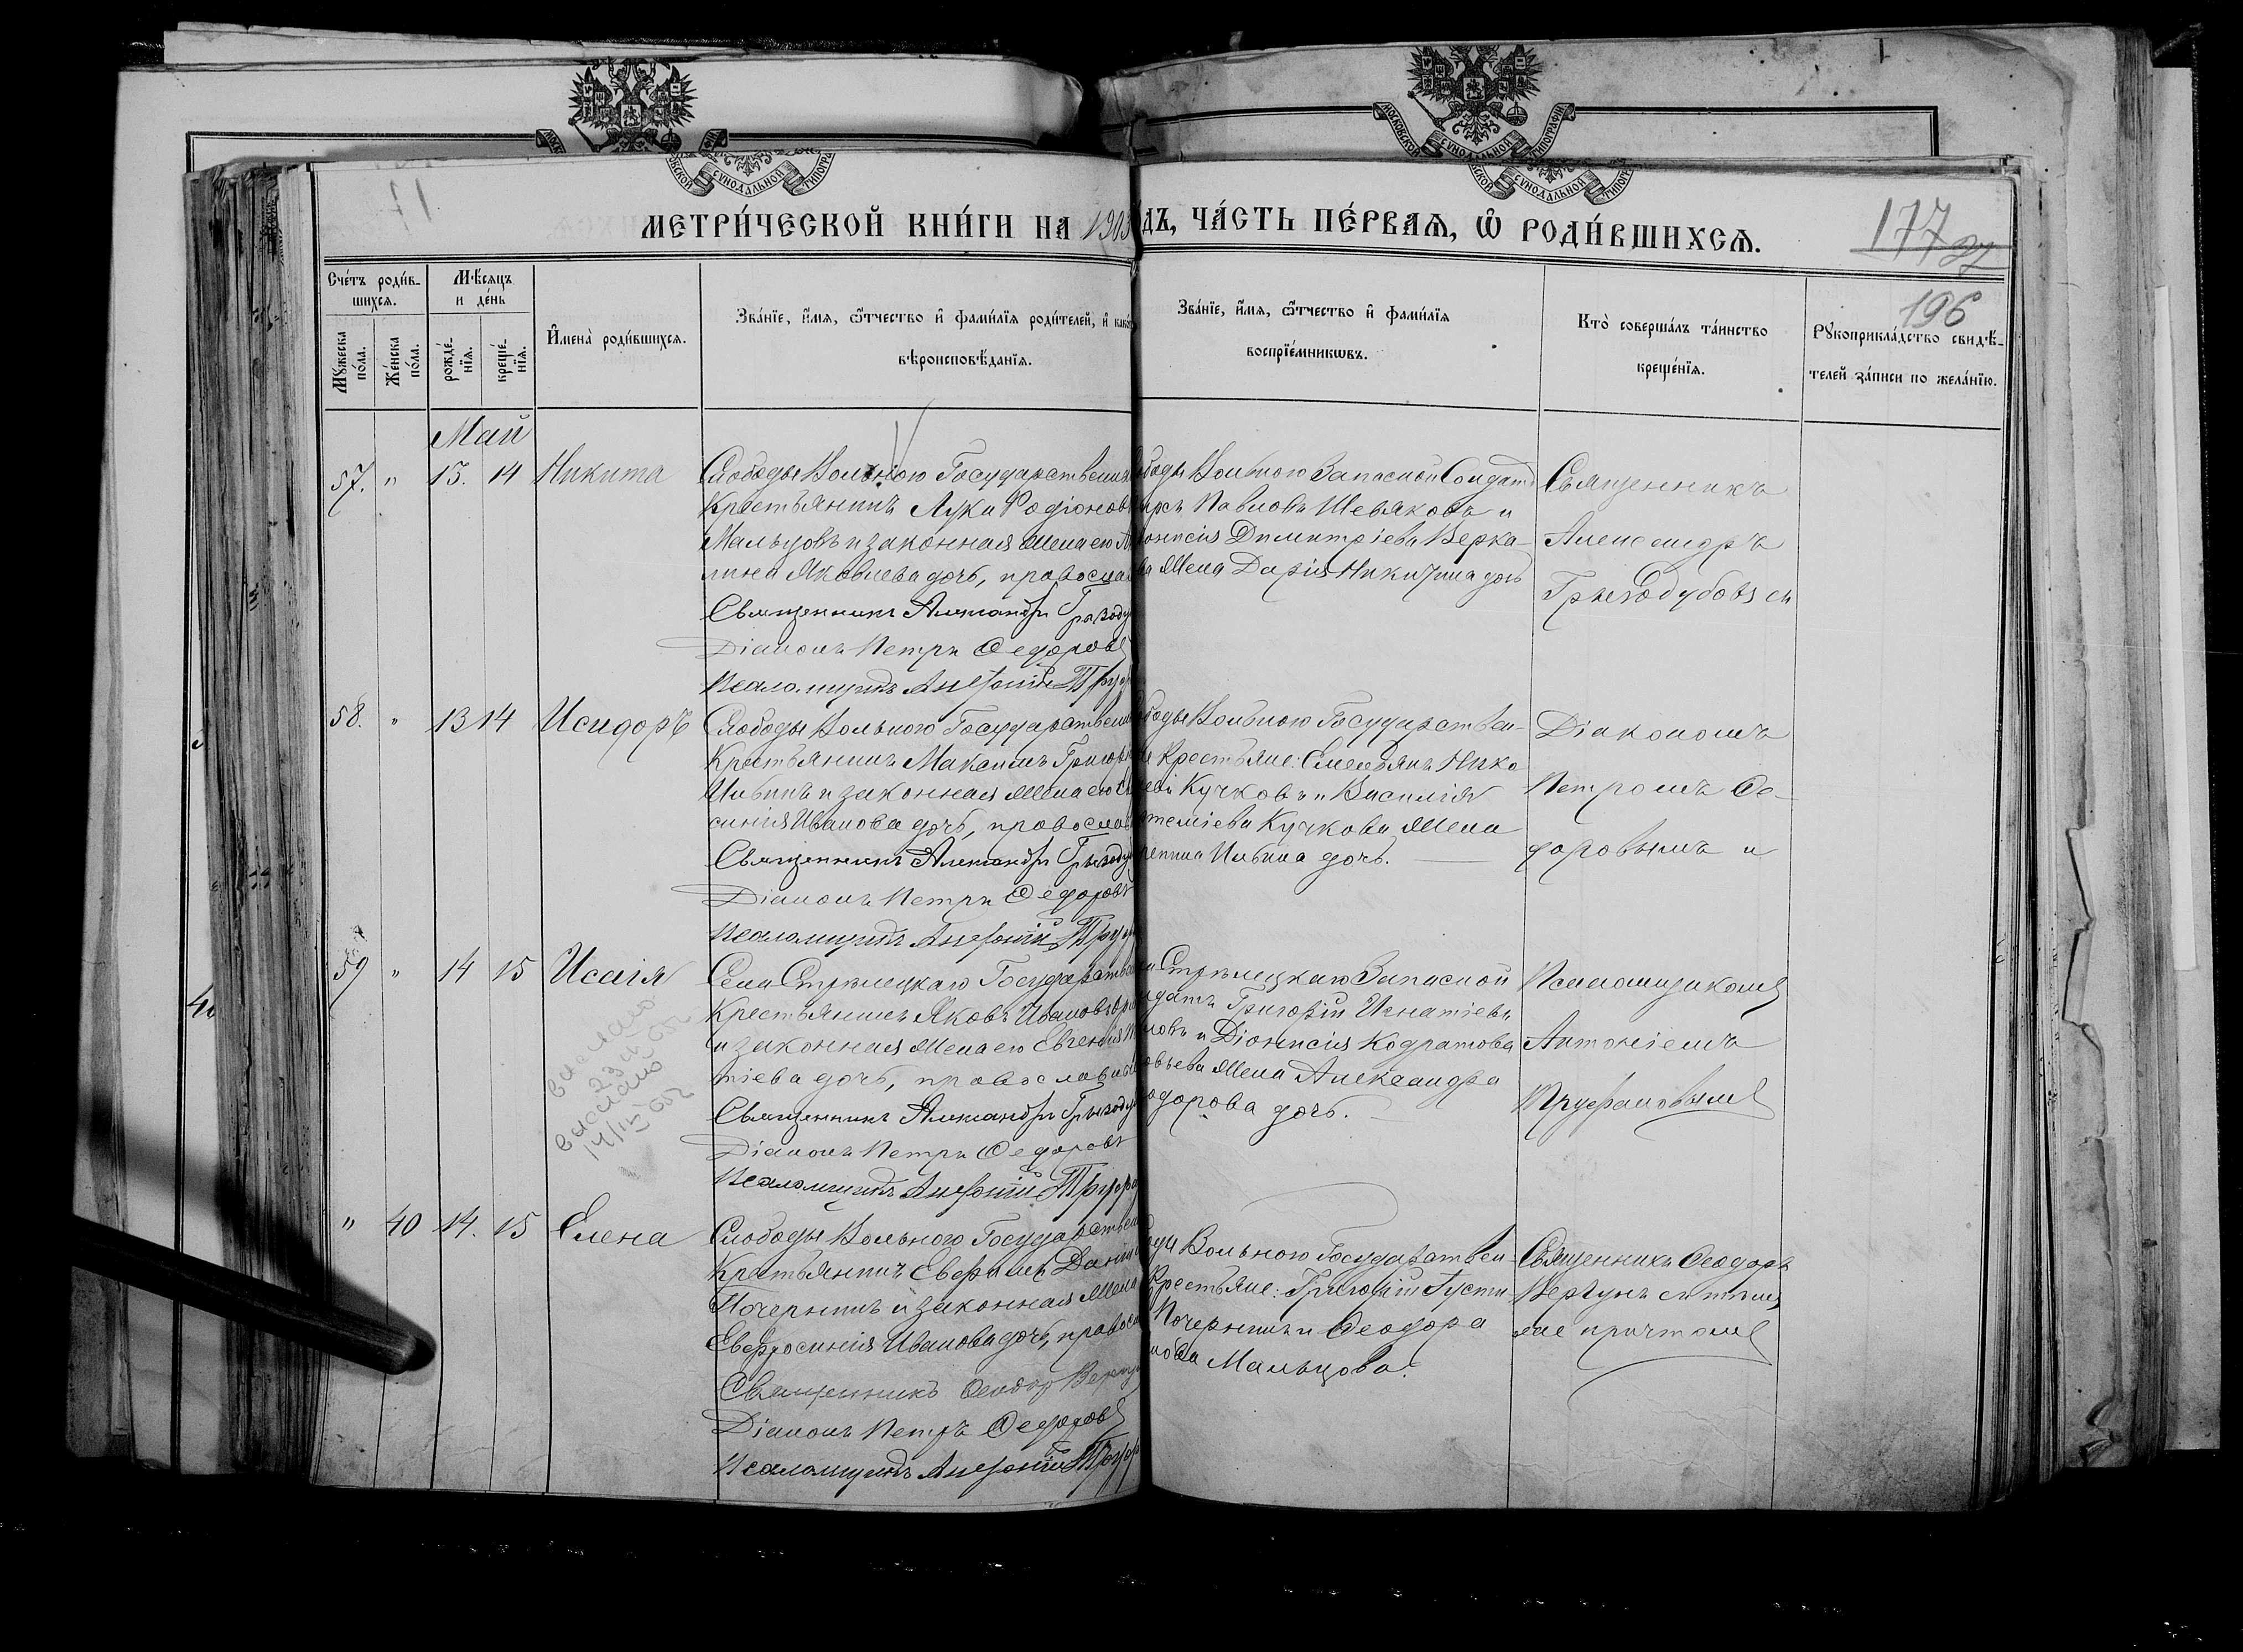 МОСКОВСКОЙ СѴНОДАЛЬНОЙ ТИПОГРАФІИ
СѴНОДАЛЬНОЙ
МЕТРИ́ЧЕСКОЙ КНИ́ГИ НА 1903
ДЪ, ЧА́СТЬ ПЕ́РВАѦ, Ѽ РОДИ́ВШИХСѦ.
177
196
Сче́тъ роди́в-
шихсѧ.
Мꙋ́жеска по́ла.
Же́нска по́ла.
Мѣ́сѧцъ
и де́нь
рожде́-
нїѧ.
креще́-
нїѧ.
И҆мена̀ роди́вшихсѧ.
Зва́нїе, и҆́мѧ, ѻ҆́тчество и҆ фами́лїѧ роди́телей, и҆
вѣроисповѣ́данїѧ.
Зва́нїе, и҆́мѧ, ѻ҆́тчество и҆ фами́лїѧ
воспрїе́мникѡвъ.
Кто̀ соверша́лъ та́инство
креще́нїѧ.
Рꙋкоприкла́дство свидѣ́-
телей за́писи по жела́нїю.
Май
57. " 13. 14 Никита
Слободы Вольною Государственн
Крестьянинъ Лука Родіонов
Мальцовъ и законная жена его
лина Яковлева дочь, правосла
Священникъ Александръ Грызоду
Діаконъ Петръ Федоровъ
Псаломщикъ Антоній Труф
боды Вольною Запасной Солдатъ
Павловъ Шевяковъ и
Діонисія Димитріева Верка-
ва жена Дарія Никитина дочь
Священникъ
Александръ
Грызодубовъ съ
58. " 13 14 Исидоръ
Слободы Вольного Государственн
Крестьянинъ Максимъ Григорь
Ильинъ и законная жена его
синія Иванова дочь, православ
Священникъ Александръ Грызоду
Діаконъ Петръ Федоровъ
Псаломщикъ Антоній Труф
боды Вольною Государствен-
Крестьяне: Емельянъ Нико
Кучковъ и Василія
Кучкова жена
Ильина дочь.
Діакономъ
Петромъ Фе-
доровымъ и
59 " 14 15 Исаія
выслано
23
выслано
Села Стрѣлецкаго Государстве
Крестьянинъ Яковъ Ивановъ
и законная жена его Евгенія
тіева дочь, православны
Священникъ Александръ Грызоду
Діаконъ Петръ Федоровъ
Псаломщикъ Антоній Труфа
Стрѣлецкаго Запасной
датъ Григорій Игнатіевъ
новъ и Діонисія Кодратова
жена Александра
одорова дочь.
Псаломщикомъ
Антоніемъ
Труфановымъ
" 40 14. 15 Елена
Слободы Вольного Государствен
Крестьянинъ Евфимъ Даніи
Почернинъ и законная жена
Евфросинія Иванова дочь, правосл
Священникъ Феодор Вергун
Діаконъ Петръ Федоровъ
Псаломщикъ Антоній Труф
Вольною Государствен-
Крестьяне: Григорій Густи-
Почернинъ и Феодора
нова Мальцова.
Священникъ Феодоръ
Вергунъ съ тѣмъ
же причтомъ